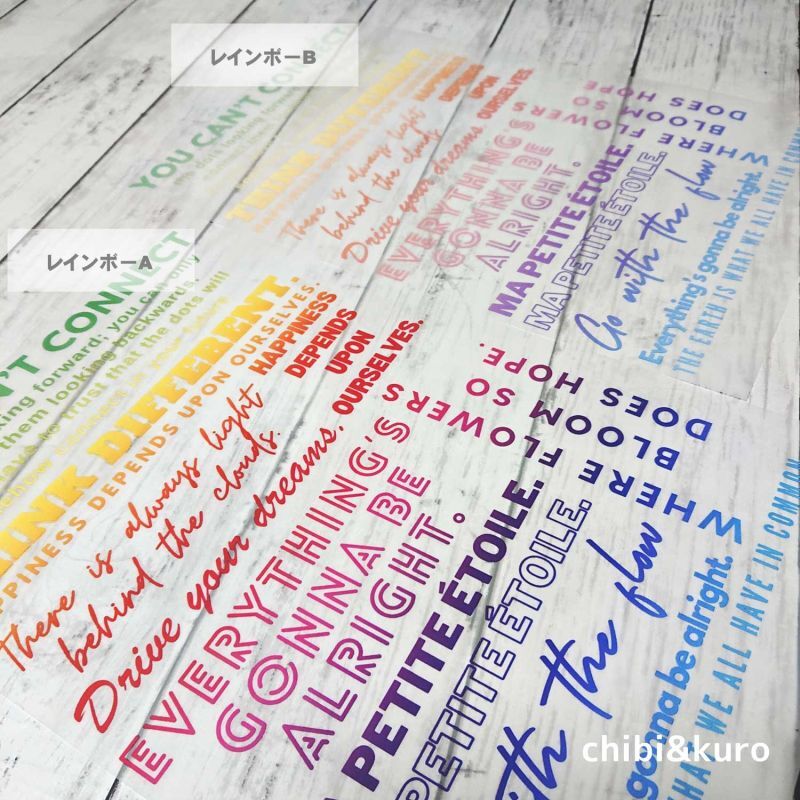 レインボーB
YOU CAN'T CONNECT
the dots looking forward
THINK DIFFERENT
HAPPINESS
DEPENDS
UPON
OURSELVES.
There is always light
behind the clouds.
Drive your dreams.
EVERYTHING'S
GONNA BE
ALRIGHT.
MA PETITE ÉTOILE.
MA PETITE ÉTOILE.
WHERE FLOWERS
BLOOM SO
DOES HOPE
Go with the flow
Everything's gonna be alright.
THE EARTH IS WHAT WE ALL HAVE IN COMMON
レインボーA
N'T CONNECT
king forward; you can only
them looking backwards.
to trust that the dots will
INK DIFFERENT.
PPINESS DEPENDS UPON OURSELVES.
HAPPINESS
DEPENDS
UPON
OURSELVES.
There is always light
behind the clouds.
Drive your dreams.
EVERYTHING'S
GONNA BE
ALRIGHT.
PETITE ÉTOILE.
PETITE ÉTOILE.
WHERE FLOWERS
BLOOM SO
DOES HOPE.
with the flow
gonna be alright.
HAT WE ALL HAVE IN COMMON
chibi&kuro